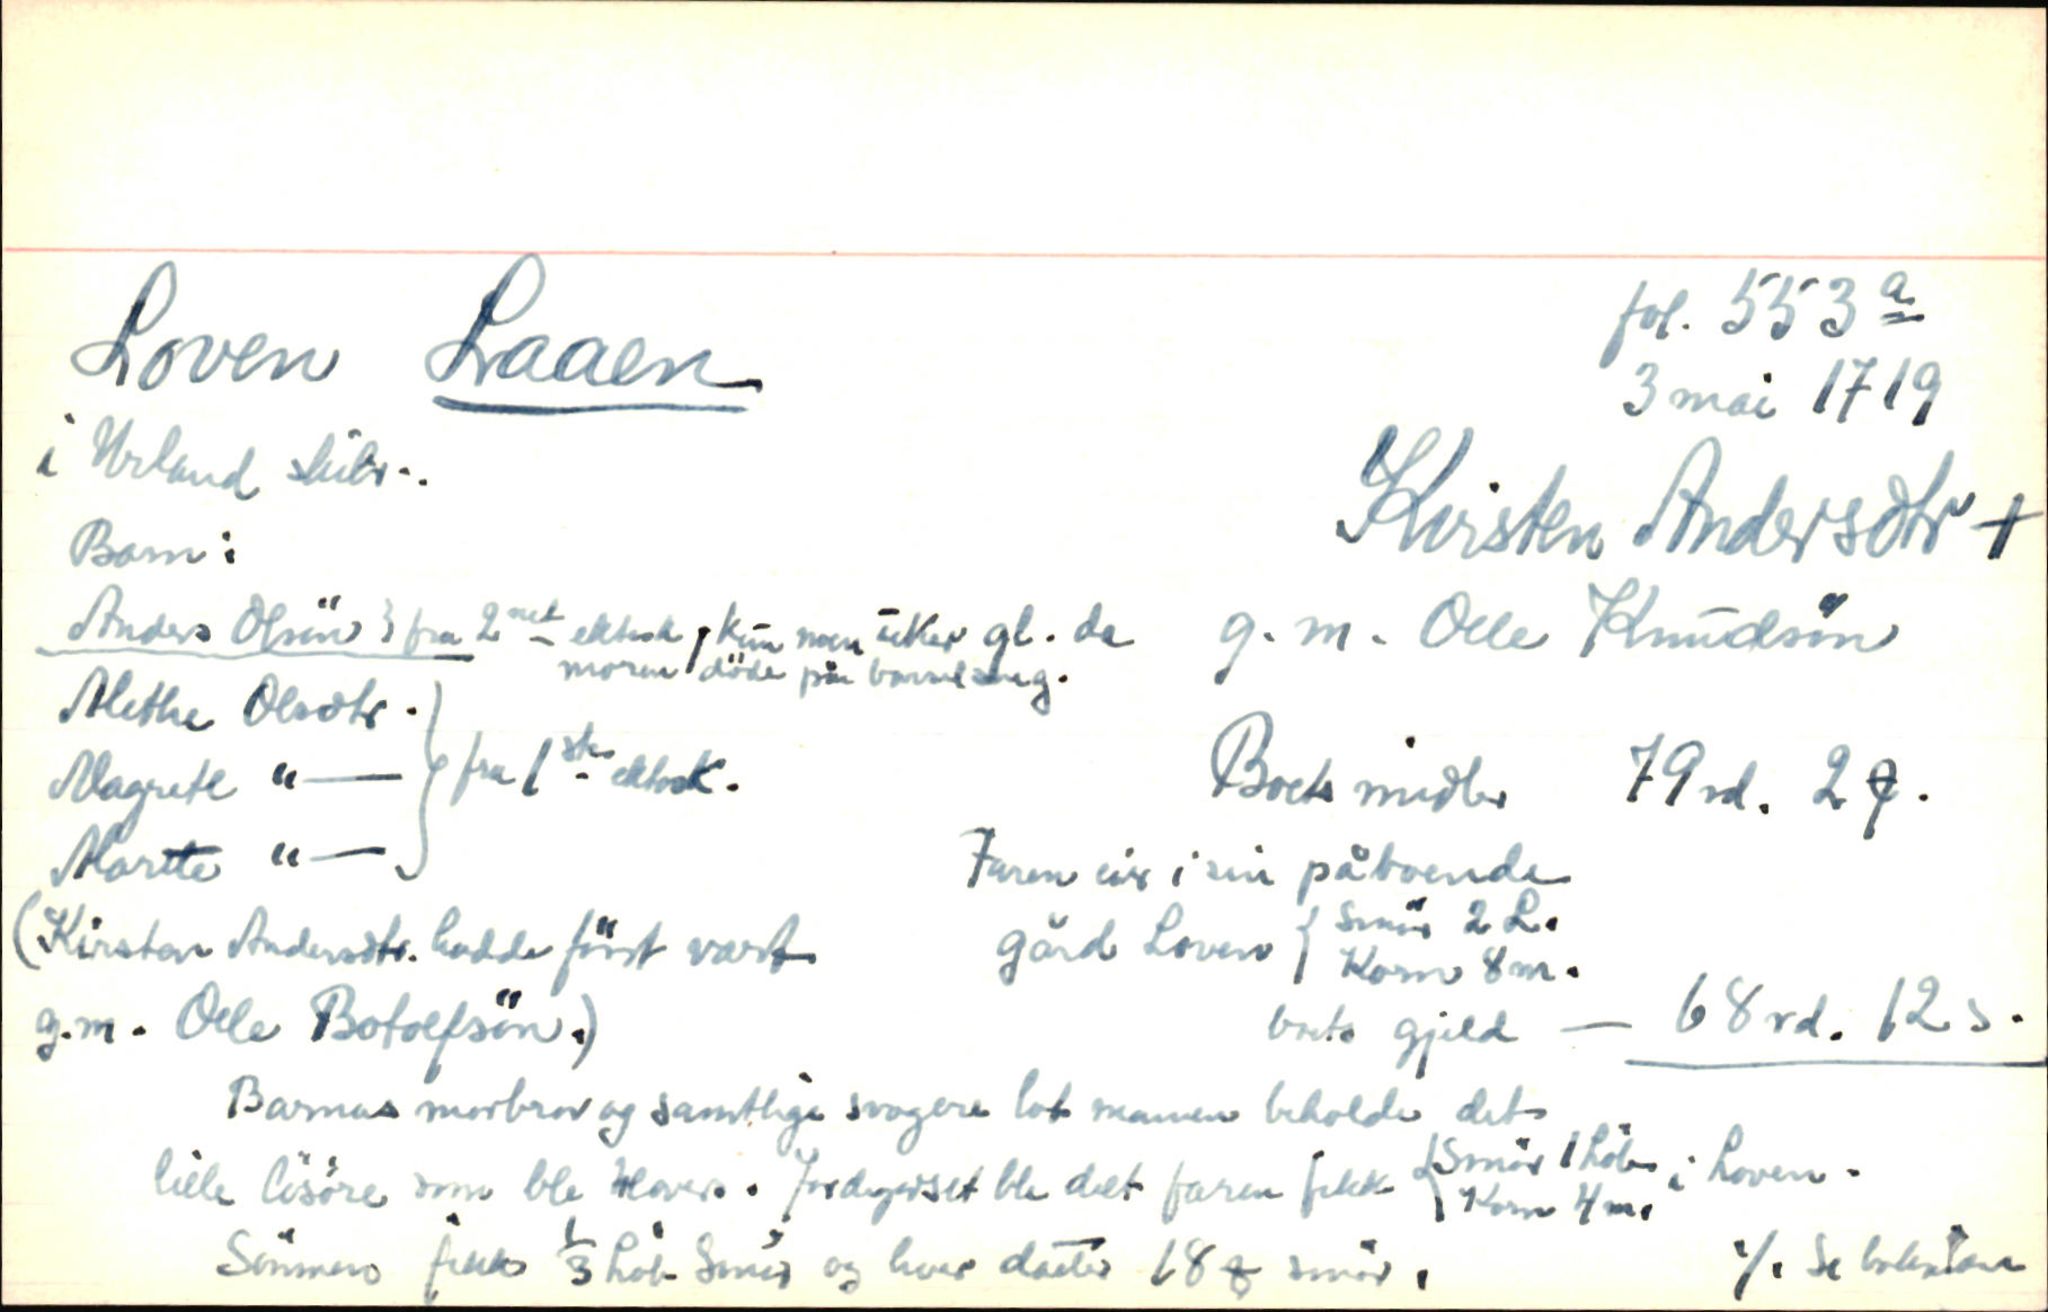 Loven Laaen
fol. 553 a
3 mai 1719
i Urland skibr..
Kirsten Andersdtr +
g. m. Olle Knudsön
Barn:
Anders Olsön } fra 2net ektesk, kun noen uker gl. da
moren döde på barselseng.
Alethe Olsdtr.
Magrete "—
Marite "—
} fra 1ste ektesk.
(Kirsten Andersdtr. hadde först vært
g.m. Olle Botolfsön.)
Boets midler 79 rd. 2 ꝗ.
Faren eier i sin påboende
gård Loven { smör 2 L.
Korn 8 m.
boets gjeld — 68 rd. 12 s.
Barnas morbror og samtlige svogere lot mannen beholde det
lille lösöre som ble tilovers. Jordegodset ble delt faren fikk { Smör 1 Löb
Korn 4 m. i Loven.
Sönnen fikk 1/3 Löb Smör og hver datter 18 ꝗ smör.
·/. Se baksiden